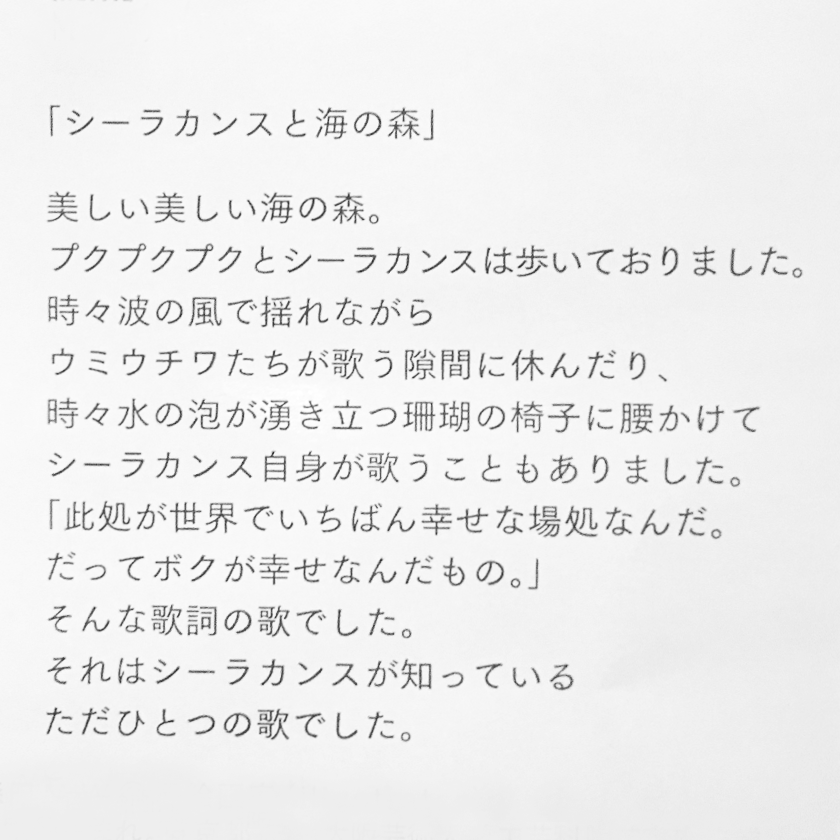 「シーラカンスと海の森」
美しい美しい海の森。
プクプクプクとシーラカンスは歩いておりました。
時々波の風で揺れながら
ウミウチワたちが歌う隙間に休んだり、
時々水の泡が湧き立つ珊瑚の椅子に腰かけて
シーラカンス自身が歌うこともありました。
「此処が世界でいちばん幸せな場処なんだ。
だってボクが幸せなんだもの。」
そんな歌詞の歌でした。
それはシーラカンスが知っている
ただひとつの歌でした。